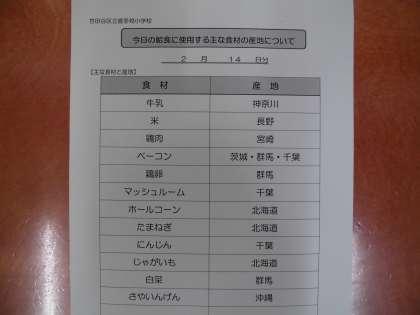 世田谷区立喜多見小学校
今日の給食に使用する主な食材の産地について
2 月 14 日分
【主な食材と産地】
食 材 産 地
牛乳 神奈川
米 長野
鶏肉 宮崎
ベーコン 茨城・群馬・千葉
鶏卵 群馬
マッシュルーム 千葉
ホールコーン 北海道
たまねぎ 北海道
にんじん 千葉
じゃがいも 北海道
白菜 群馬
さやいんげん 沖縄